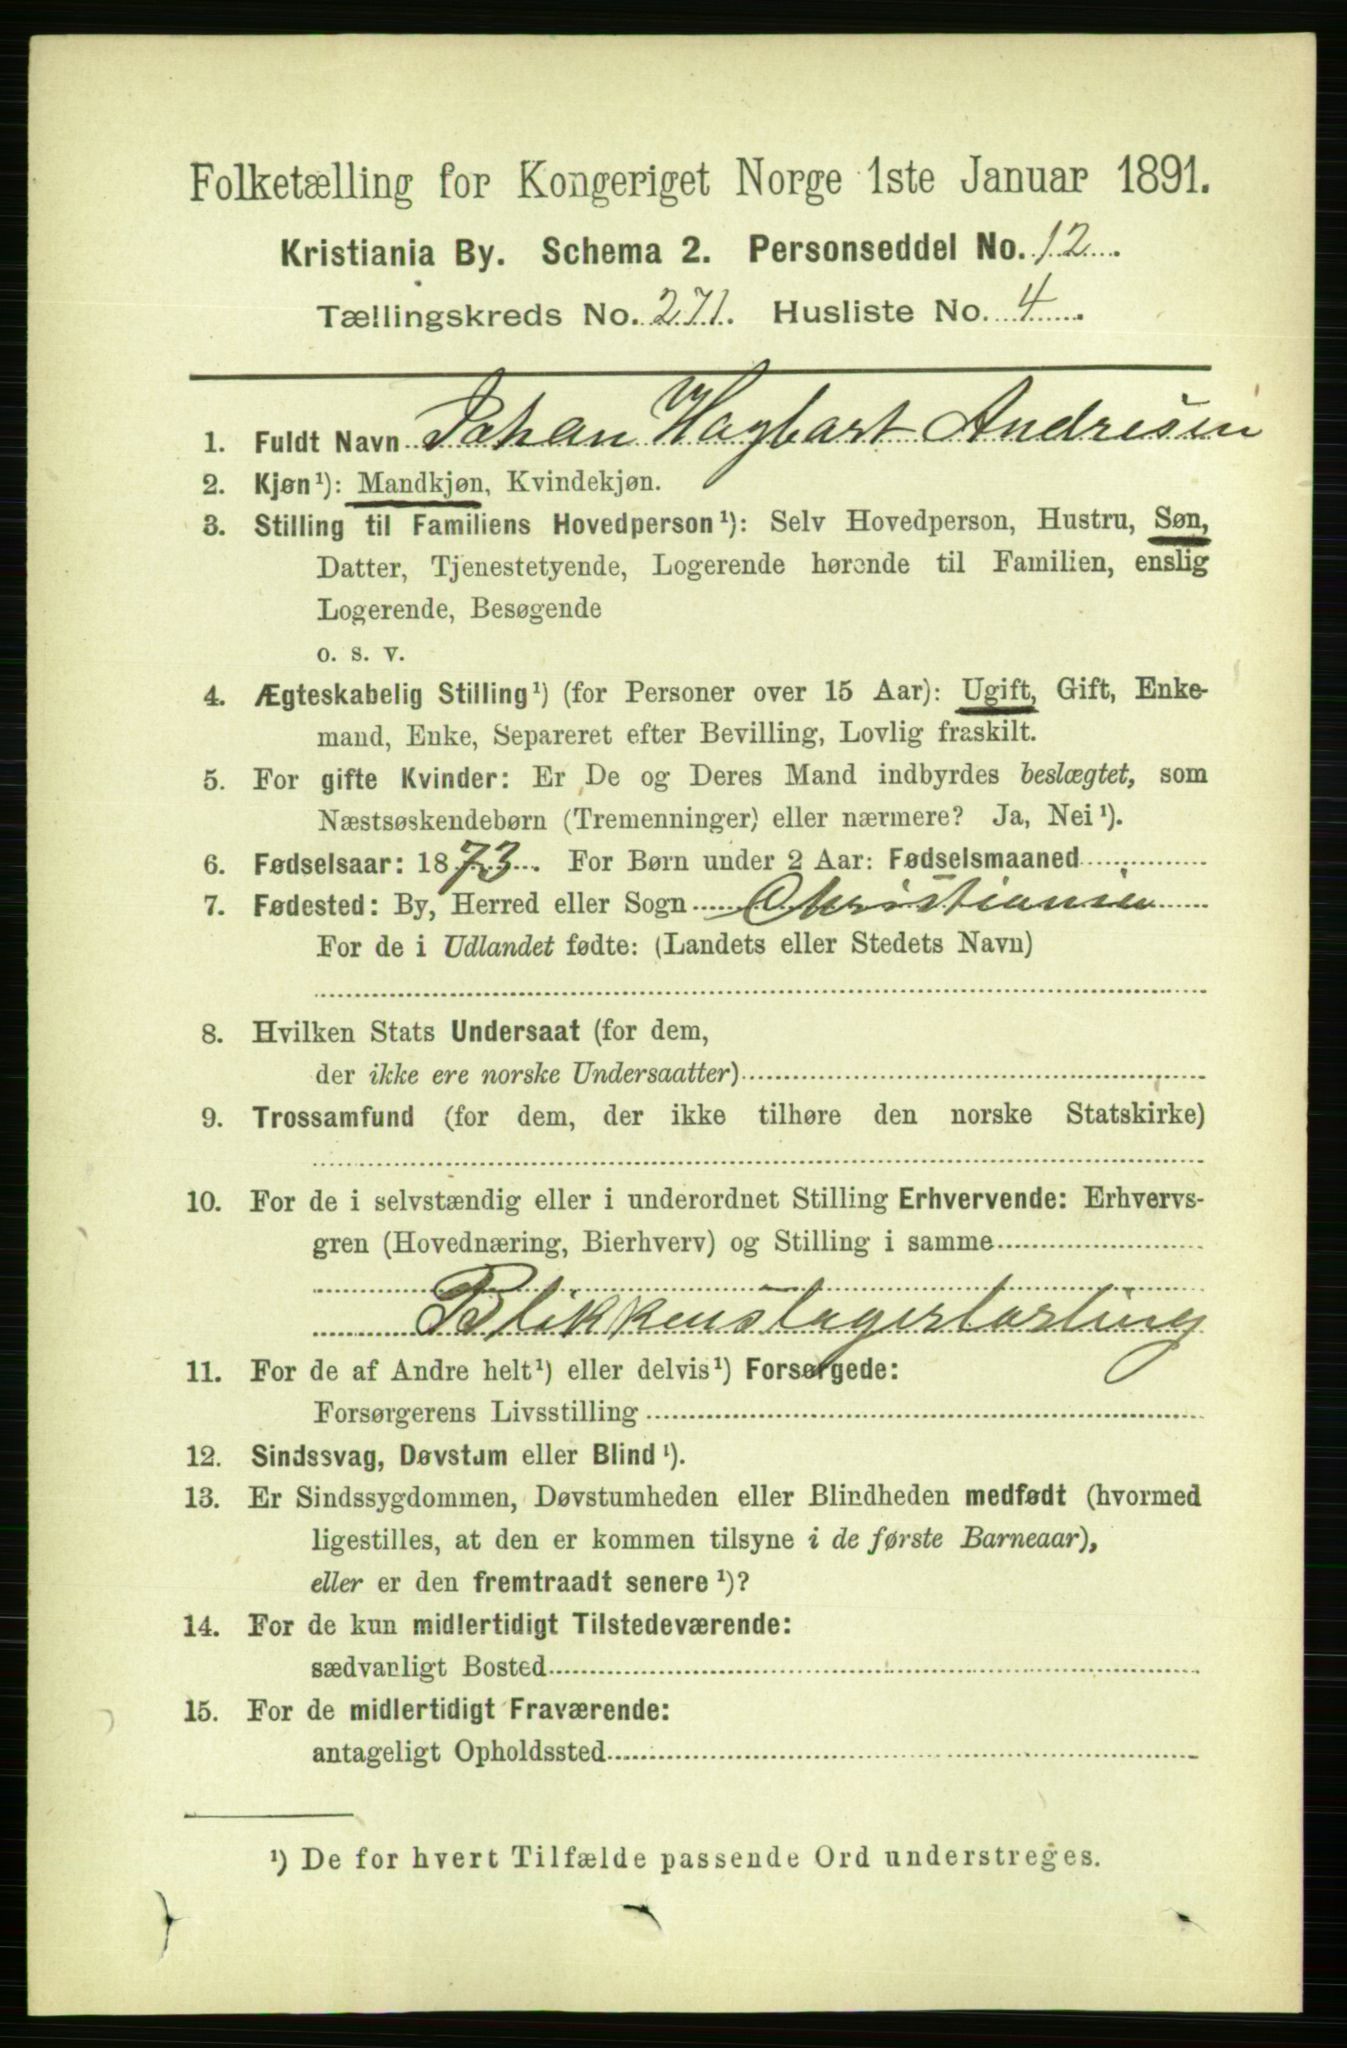 Folketælling for Kongeriget Norge 1ste Januar 1891.
Kristiania By. Schema 2. Personseddel No. 12
Tællingskreds No. 271. Husliste No. 4
1. Fuldt Navn Johan Hagbart Andresen
2. Kjøn¹): Mandkjøn, Kvindekjøn.
3. Stilling til Familiens Hovedperson¹): Selv Hovedperson, Hustru, Søn,
Datter, Tjenestetyende, Logerende hørende til Familien, enslig
Logerende, Besøgende
o. s. v.
4. Ægteskabelig Stilling¹) (for Personer over 15 Aar): Ugift, Gift, Enke-
mand, Enke, Separeret efter Bevilling, Lovlig fraskilt.
5. For gifte Kvinder: Er De og Deres Mand indbyrdes beslægtet, som
Næstsøskendebørn (Tremenninger) eller nærmere? Ja, Nei¹).
6. Fødselsaar: 1873. For Børn under 2 Aar: Fødselsmaaned
7. Fødested: By, Herred eller Sogn Christiania
For de i Udlandet fødte: (Landets eller Stedets Navn)
8. Hvilken Stats Undersaat (for dem,
der ikke ere norske Undersaatter)
9. Trossamfund (for dem, der ikke tilhøre den norske Statskirke)
10. For de i selvstændig eller i underordnet Stilling Erhvervende: Erhvervs-
gren (Hovednæring, Bierhverv) og Stilling i samme
Blikkenslagerlærling
11. For de af Andre helt¹) eller delvis¹) Forsørgede:
Forsørgerens Livsstilling
12. Sindssvag, Døvstum eller Blind¹).
13. Er Sindssygdommen, Døvstumheden eller Blindheden medfødt (hvormed
ligestilles, at den er kommen tilsyne i de første Barneaar),
eller er den fremtraadt senere¹)?
14. For de kun midlertidigt Tilstedeværende:
sædvanligt Bosted
15. For de midlertidigt Fraværende:
antageligt Opholdssted
¹) De for hvert Tilfælde passende Ord understreges.